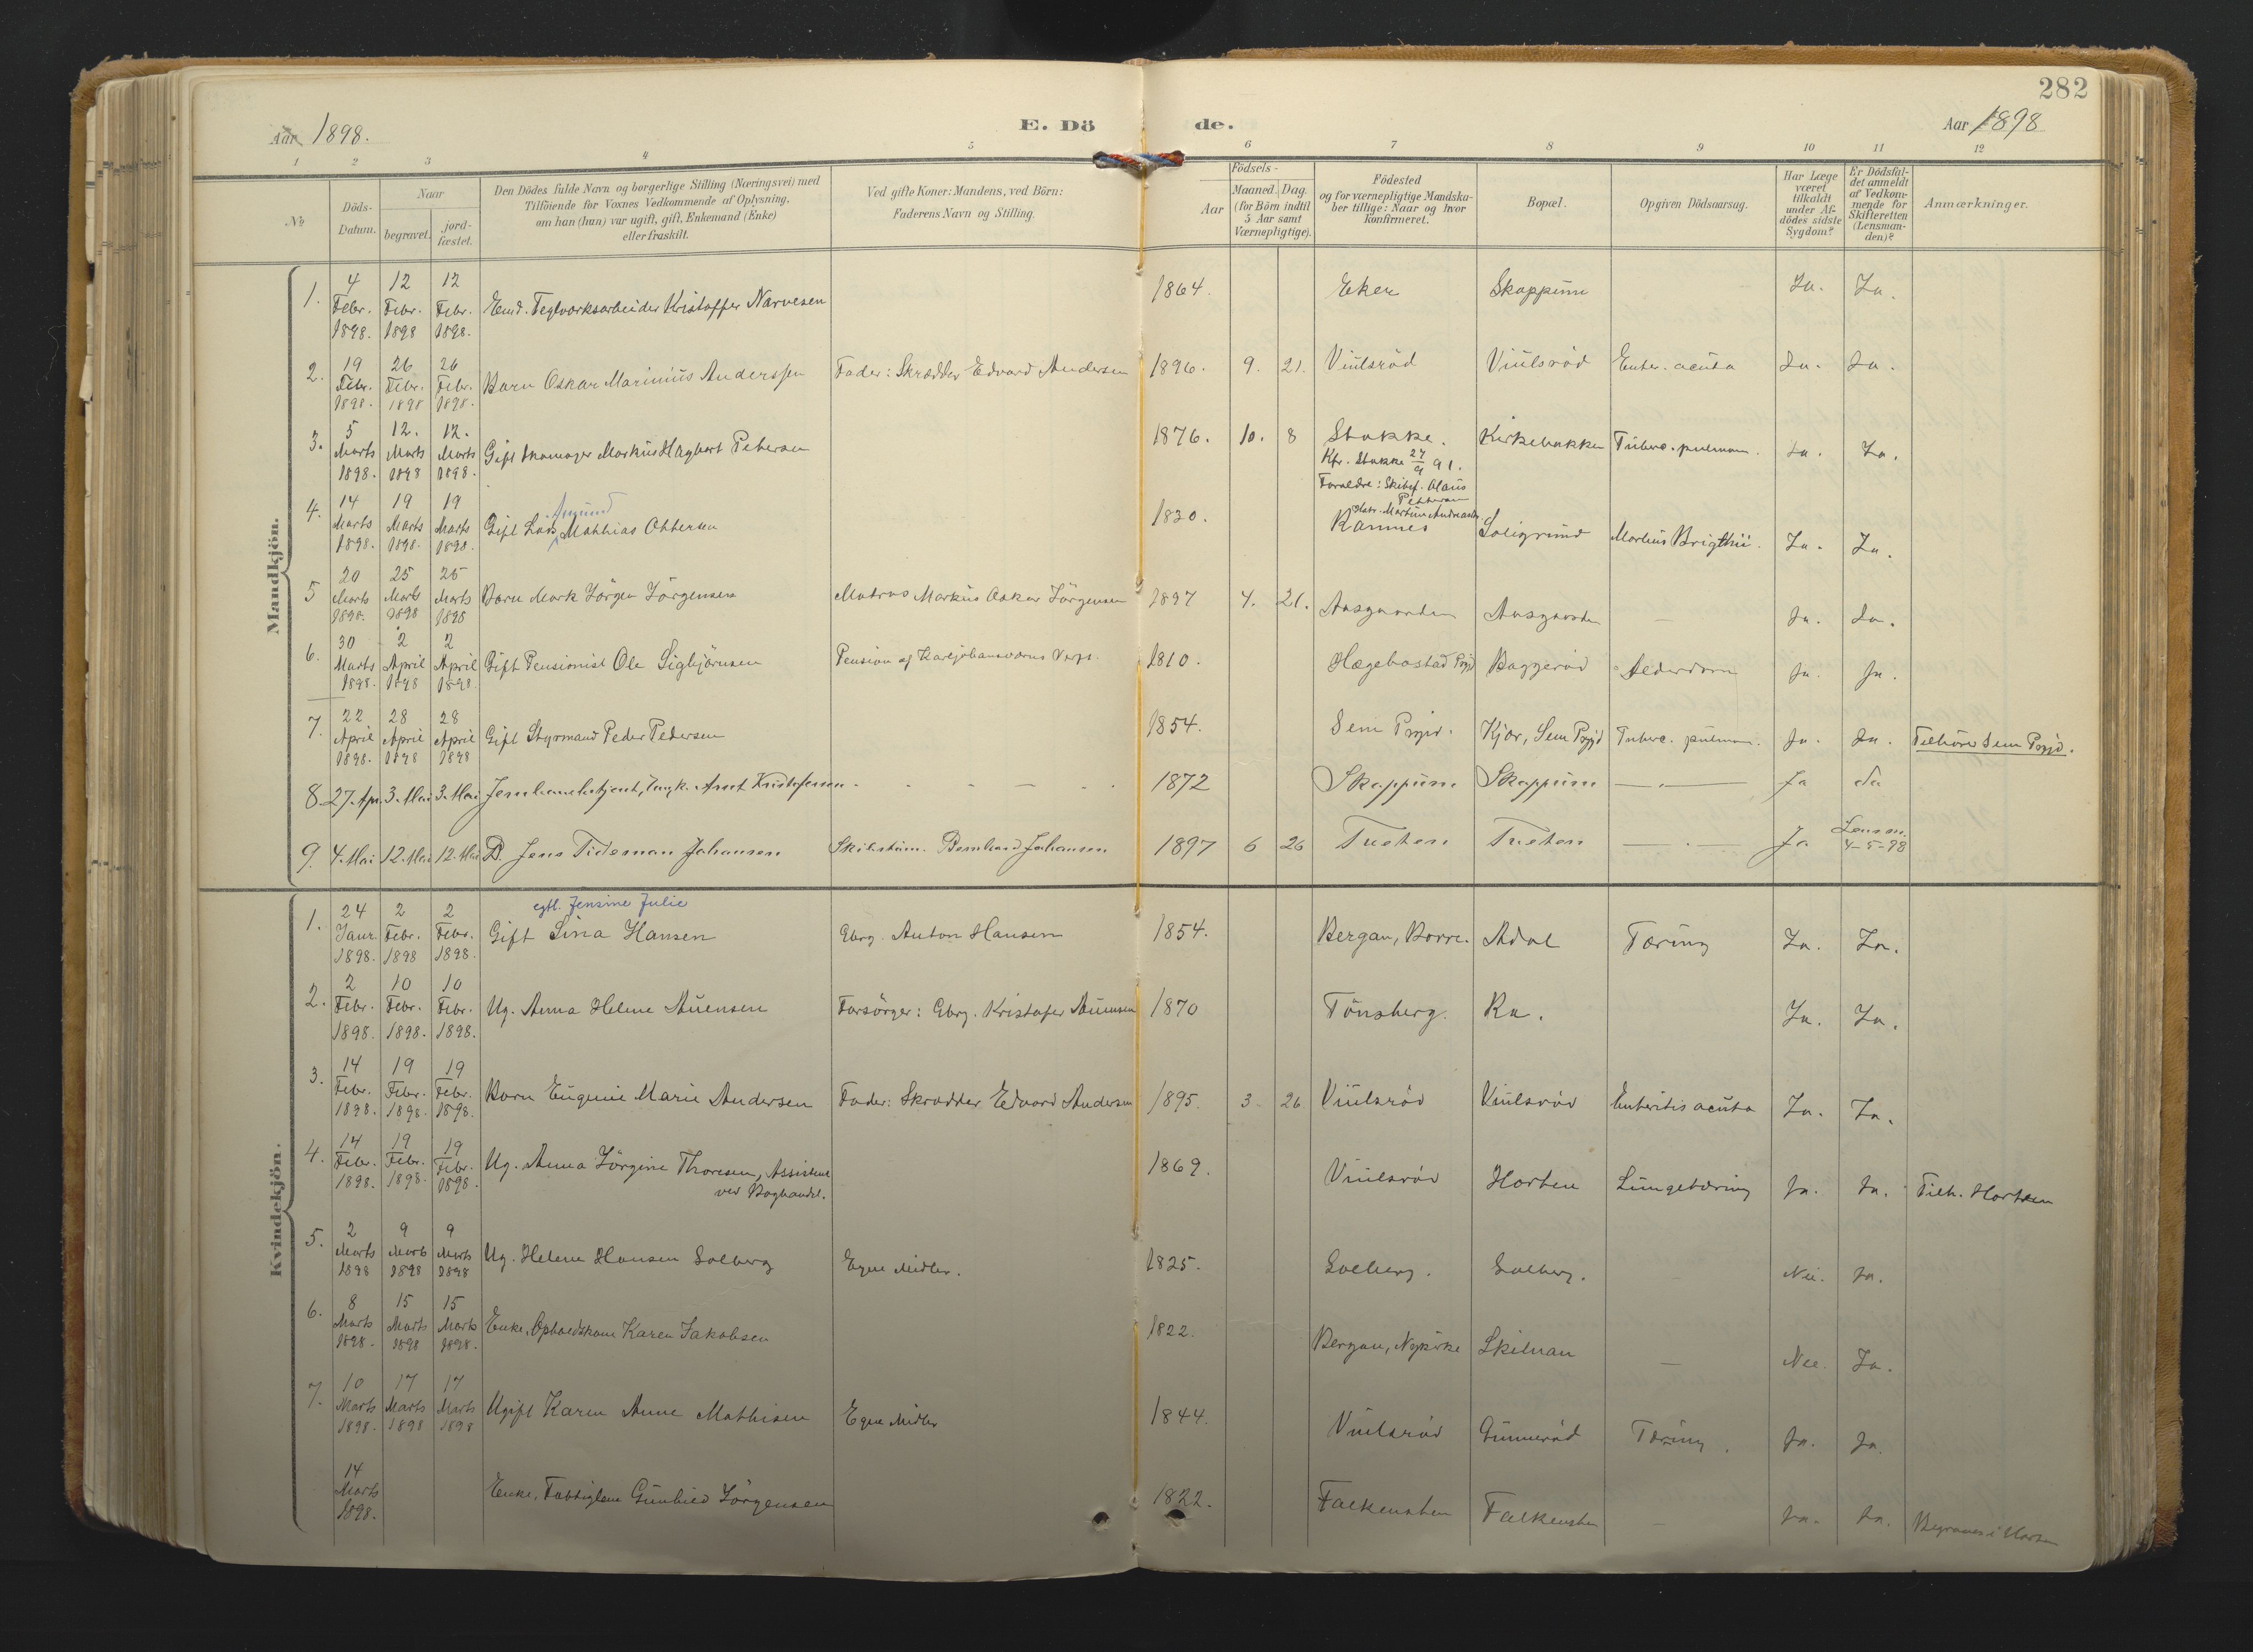 282
Aar 1898.
E. Döde.
Aar 1898
1 2 3 4 5 6 7 8 9 10 11 12
No
Döds-Datum.
Naar
begravet.
jord-fæstet.
Den Dödes fulde Navn og borgerlige Stilling (Næringsvei) med
Tilföiende for Voxnes Vedkommende af Oplysning,
om han (hun) var ugift, gift, Enkemand (Enke)
eller fraskilt.
Ved gifte Koner: Mandens, ved Börn:
Faderens Navn og Stilling.
Födsels-
Aar
Maaned. Dag.
(for Börn indtil
5 Aar samt
Værnepligtige).
Födested
og for værnepligtige Mandska-
ber tillige: Naar og hvor
Konfirmeret.
Bopæl.
Opgiven Dödsaarsag.
Har Læge
været
tilkaldt
under Af-
dödes sidste
Sygdom?
Er Dödsfal-
det anmeldt
af Vedkom-
mende for
Skifteretten
(Lensman-
den)?
Anmærkninger.
Mandkjön.
1. 4 Febr. 1898. 12 Febr. 1898 12 Febr. 1898. Emd. Teglværksarbeider Kristoffer Narvesen 1864. Eker Skoppum Ja. Ja.
2. 19 Febr. 1898. 26 Febr. 1898 26 Febr. 1898. Barn Oskar Marinius Anderssen Fader: Skrædder Edvard Andersen 1896. 9. 21. Viulsröd Viulsröd Enter. acuta Ja. Ja.
3. 5 Marts 1898. 12. Marts 1898 12. Marts 1898. Gift Skomager Markus Hagbart Petersen 1876. 10. 8 Stokke. Kirkebakken Tuberc. pulmon. Ja. Ja.
Kfr. Stokke 27/9 91.
Forældre: Skibsf. Olaus
Pettersen
Martine Andreasdr.
4. 14 Marts 1898. 19 Marts 1898. 19 Marts 1898. Gift Lars Amund Mathias Ottersen 1830. Ramnes Soligrund Morbus Brigthii. Ja. Ja.
5 20 Marts 1898. 25 Marts 1898 25 Marts 1898 Barn Mark Jörgen Jörgensen Matros Markus Oskar Jörgensen 1897 4. 21. Aasgaarden Aasgaarden – Ja. Ja.
6. 30 Marts 1898. 2 April 1898 2 April 1898. Gift Pensionist Ole Sigbjörnsen Pension af Karljohansværns Værft. 1810. Hægebostad Prgjd Baggeröd Alderdom Ja. Ja.
7. 22 April 1898. 28 April 1898 28 April 1898 Gift Styrmand Peder Pedersen 1854. Sem Prgjd. Kjær, Sem Prgjd Tuberc. pulmon. Ja. Ja. Tilhörer Sem Prgjd.
8 27. Apr. 3. Mai 3. Mai Jernbanebetjent, Ungk. Arnt Kristofersen 1872 Skoppum Skoppum – Ja da
9. 4. Mai 12. Mai 12. Mai B. Jens Tideman Johansen Skibstøm. Bernhard Johansen 1897 6 26 Tueten Tueten – Ja Lensm. 4-5-98
Kvindekjön.
egtl. Jensine Julie
1. 24 Janur. 1898. 2 Febr. 1898 2 Febr. 1898. Gift Sina Hansen Gbrg. Anton Hansen 1854. Bergan, Borre. Adal Tæring Ja. Ja.
2. 2 Febr. 1898. 10 Febr. 1898. 10 Febr. 1898. Ug. Anna Helene Auensen Forsörger: Gbrg. Kristofer Auensen 1870 Tönsberg. Ra. Ja. Ja.
3. 14 Febr. 1898. 19 Febr. 1898. 19 Febr. 1898. Barn Eugenie Marie Andersen Fader: Skrædder Edvard Andersen 1895. 3 26 Viulsröd Viulsröd Enteritis acuta Ja. Ja.
4. 14 Febr. 1898. 19 Febr. 1898. 19 Febr. 1898. Ug. Anna Jörgine Thoresen, Assistent
ved Boghandel. 1869. Viulsröd Horten Lungetæring Ja. Ja. Tilh. Horten
5. 2 Marts 1898 9 Marts 1898 9 Marts 1898 Ug. Helene Hansen Solberg Egne Midler. 1825. Solberg. Solberg. – Nei. Ja.
6. 8 Marts 1898. 15 Marts 1898 15 Marts 1898. Enke, Opholdskone Karen Jakobsen 1822. Bergan, Nykirke Skilnan – Nei. Ja.
7. 10 Marts 1898. 17 Marts 1898 17 Marts 1898 Ugift Karen Anne Mathisen Egne Midler 1844. Viulsröd Gunneröd Tæring. Ja. Ja.
14 Marts 1898. Enke, Fattiglem Gunhild Jörgensen 1822. Falkensten Falkensten – Ja. Ja. Begraves i Horten